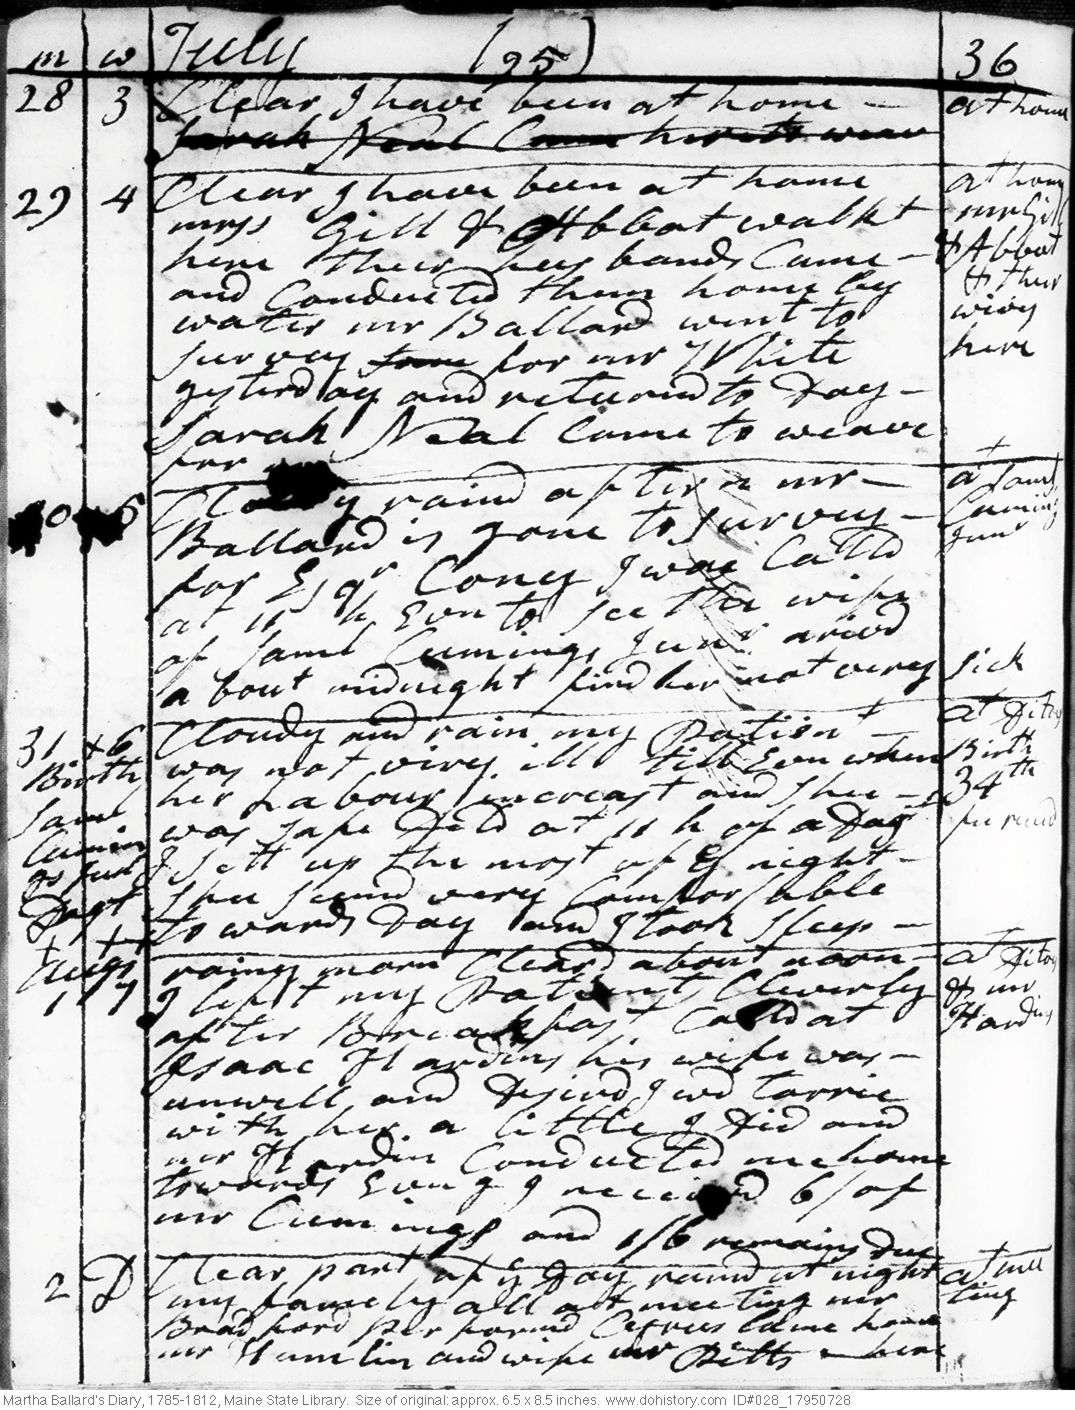 m w July (95) 36
28 3 Clear I have been at home – at home
Sarah Neal Came here to weav
29 4 Clear I have been at home at home
mrss Gill & Abbat walkt mr Gill
here their hus bands Came – & Abbat
and Conducted them home by & their
water mr Ballard went to wives
survey for mr White here
yesterday and returnd to Day –
Sarah Neal Came to weave
for
Cloudy raind after n mr – at Saml
Ballard is gone to survey – Cumings
for Esqr Cony I was Calld Junr
at 11 h Evn to see the wife
of Saml Cumings Junr arivd
a bout midnight find her not very sick
31 + 6 Cloudy and rain my Patient at Ditoes
Birth was not very ill till Evn when Birth
Saml her Labour increast and shee – 34th
Cumin was safe Deld at 11 h of a Dagt
gs Junr I sett up the most of ye night –
Dagt shee seemd very Comforfable
to wards Day and I took sleep –
+ +
Augt rainy morn Cleard about noon – at Ditos
1 7 I left my Patient Cleverly & mr
after Breakfast Calld at Hardins
Isaac Hardins his wife was –
unwell and Desird I wd tarrie
with her a little I Did and
mr Hardin Conducted me home
towards Evng I received 6/ of
mr Cumings and 1/6 remains Due
2 D Clear part of ye Day raind at night at mee
my famely all at meeting mr ting
Bradford per formd Cyrus Came home
mr Hamlin and wife mr Pitts here
Martha Ballard's Diary, 1785-1812, Maine State Library. Size of original: approx. 6.5 x 8.5 inches. www.dohistory.com ID#028_17950728